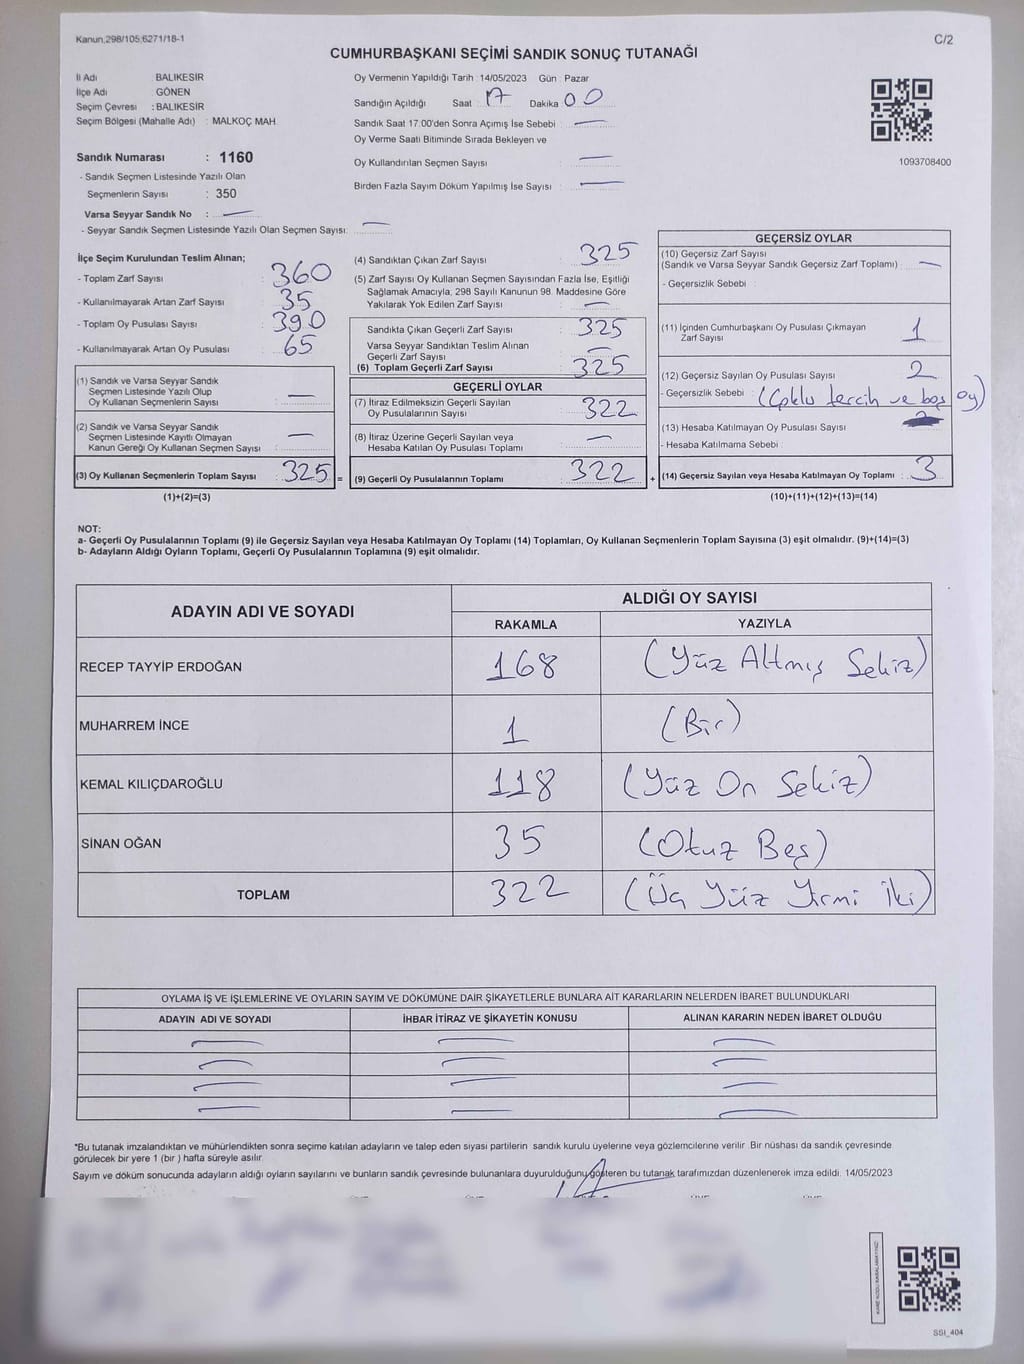 Kanun,298/105,6271/18-1
C/2
CUMHURBAŞKANI SEÇİMİ SANDIK SONUÇ TUTANAĞI
İl Adı BALIKESİR
İlçe Adı GÖNEN
Seçim Çevresi : BALIKESİR
Seçim Bölgesi (Mahalle Adı) : MALKOÇ MAH.
Sandık Numarası : 1160
- Sandık Seçmen Listesinde Yazılı Olan
Seçmenlerin Sayısı : 350
Varsa Seyyar Sandık No :
- Seyyar Sandık Seçmen Listesinde Yazılı Olan Seçmen Sayısı:
Oy Vermenin Yapıldığı Tarih : 14/05/2023 Gün : Pazar
Sandığın Açıldığı Saat : 17 Dakika : 00
Sandık Saat 17:00'den Sonra Açımış İse Sebebi :
Oy Verme Saati Bitiminde Sırada Bekleyen ve
Oy Kullandırılan Seçmen Sayısı :
Birden Fazla Sayım Döküm Yapılmış İse Sayısı :
1093708400
İlçe Seçim Kurulundan Teslim Alınan;
- Toplam Zarf Sayısı : 360
- Kullanılmayarak Artan Zarf Sayısı : 35
- Toplam Oy Pusulası Sayısı : 390
- Kullanılmayarak Artan Oy Pusulası : 65
(1) Sandık ve Varsa Seyyar Sandık
Seçmen Listesinde Yazılı Olup
Oy Kullanan Seçmenlerin Sayısı :
(2) Sandık ve Varsa Seyyar Sandık
Seçmen Listesinde Kayıtlı Olmayan
Kanun Gereği Oy Kullanan Seçmen Sayısı :
(3) Oy Kullanan Seçmenlerin Toplam Sayısı : 325 =
(1)+(2)=(3)
(4) Sandıktan Çıkan Zarf Sayısı : 325
(5) Zarf Sayısı Oy Kullanan Seçmen Sayısından Fazla İse, Eşitliği
Sağlamak Amacıyla, 298 Sayılı Kanunun 98. Maddesine Göre
Yakılarak Yok Edilen Zarf Sayısı :
Sandıkta Çıkan Geçerli Zarf Sayısı : 325
Varsa Seyyar Sandıktan Teslim Alınan
Geçerli Zarf Sayısı :
(6) Toplam Geçerli Zarf Sayısı : 325
GEÇERLİ OYLAR
(7) İtiraz Edilmeksizin Geçerli Sayılan
Oy Pusulalarının Sayısı : 322
(8) İtiraz Üzerine Geçerli Sayılan veya
Hesaba Katılan Oy Pusulası Toplamı :
(9) Geçerli Oy Pusulalarının Toplamı : 322 +
GEÇERSİZ OYLAR
(10) Geçersiz Zarf Sayısı
(Sandık ve Varsa Seyyar Sandık Geçersiz Zarf Toplamı) :
- Geçersizlik Sebebi :
(11) İçinden Cumhurbaşkanı Oy Pusulası Çıkmayan
Zarf Sayısı : 1
(12) Geçersiz Sayılan Oy Pusulası Sayısı : 2
- Geçersizlik Sebebi : (Çoklu tercih ve boş oy)
(13) Hesaba Katılmayan Oy Pusulası Sayısı :
- Hesaba Katılmama Sebebi :
(14) Geçersiz Sayılan veya Hesaba Katılmayan Oy Toplamı : 3
(10)+(11)+(12)+(13)=(14)
NOT:
a- Geçerli Oy Pusulalarının Toplamı (9) ile Geçersiz Sayılan veya Hesaba Katılmayan Oy Toplamı (14) Toplamları, Oy Kullanan Seçmenlerin Toplam Sayısına (3) eşit olmalıdır. (9)+(14)=(3)
b- Adayların Aldığı Oyların Toplamı, Geçerli Oy Pusulalarının Toplamına (9) eşit olmalıdır.
ADAYIN ADI VE SOYADI
ALDIĞI OY SAYISI
RAKAMLA YAZIYLA
RECEP TAYYİP ERDOĞAN 168 (Yüz Altmış Sekiz)
MUHARREM İNCE 1 (Bir)
KEMAL KILIÇDAROĞLU 118 (Yüz On Sekiz)
SİNAN OĞAN 35 (Otuz Beş)
TOPLAM 322 (Üç Yüz Yirmi İki)
OYLAMA İŞ VE İŞLEMLERİNE VE OYLARIN SAYIM VE DÖKÜMÜNE DAİR ŞİKAYETLERLE BUNLARA AİT KARARLARIN NELERDEN İBARET BULUNDUKLARI
ADAYIN ADI VE SOYADI İHBAR İTİRAZ VE ŞİKAYETİN KONUSU ALINAN KARARIN NEDEN İBARET OLDUĞU
*Bu tutanak imzalandıktan ve mühürlendikten sonra seçime katılan adayların ve talep eden siyasi partilerin sandık kurulu üyelerine veya gözlemcilerine verilir. Bir nüshası da sandık çevresinde
görülecek bir yere 1 (bir ) hafta süreyle asılır.
Sayım ve döküm sonucunda adayların aldığı oyların sayılarını ve bunların sandık çevresinde bulunanlara duyurulduğunu gösteren bu tutanak tarafımızdan düzenlenerek imza edildi. 14/05/2023
KARE KODU KARALAMAYINIZ!
SSI_404